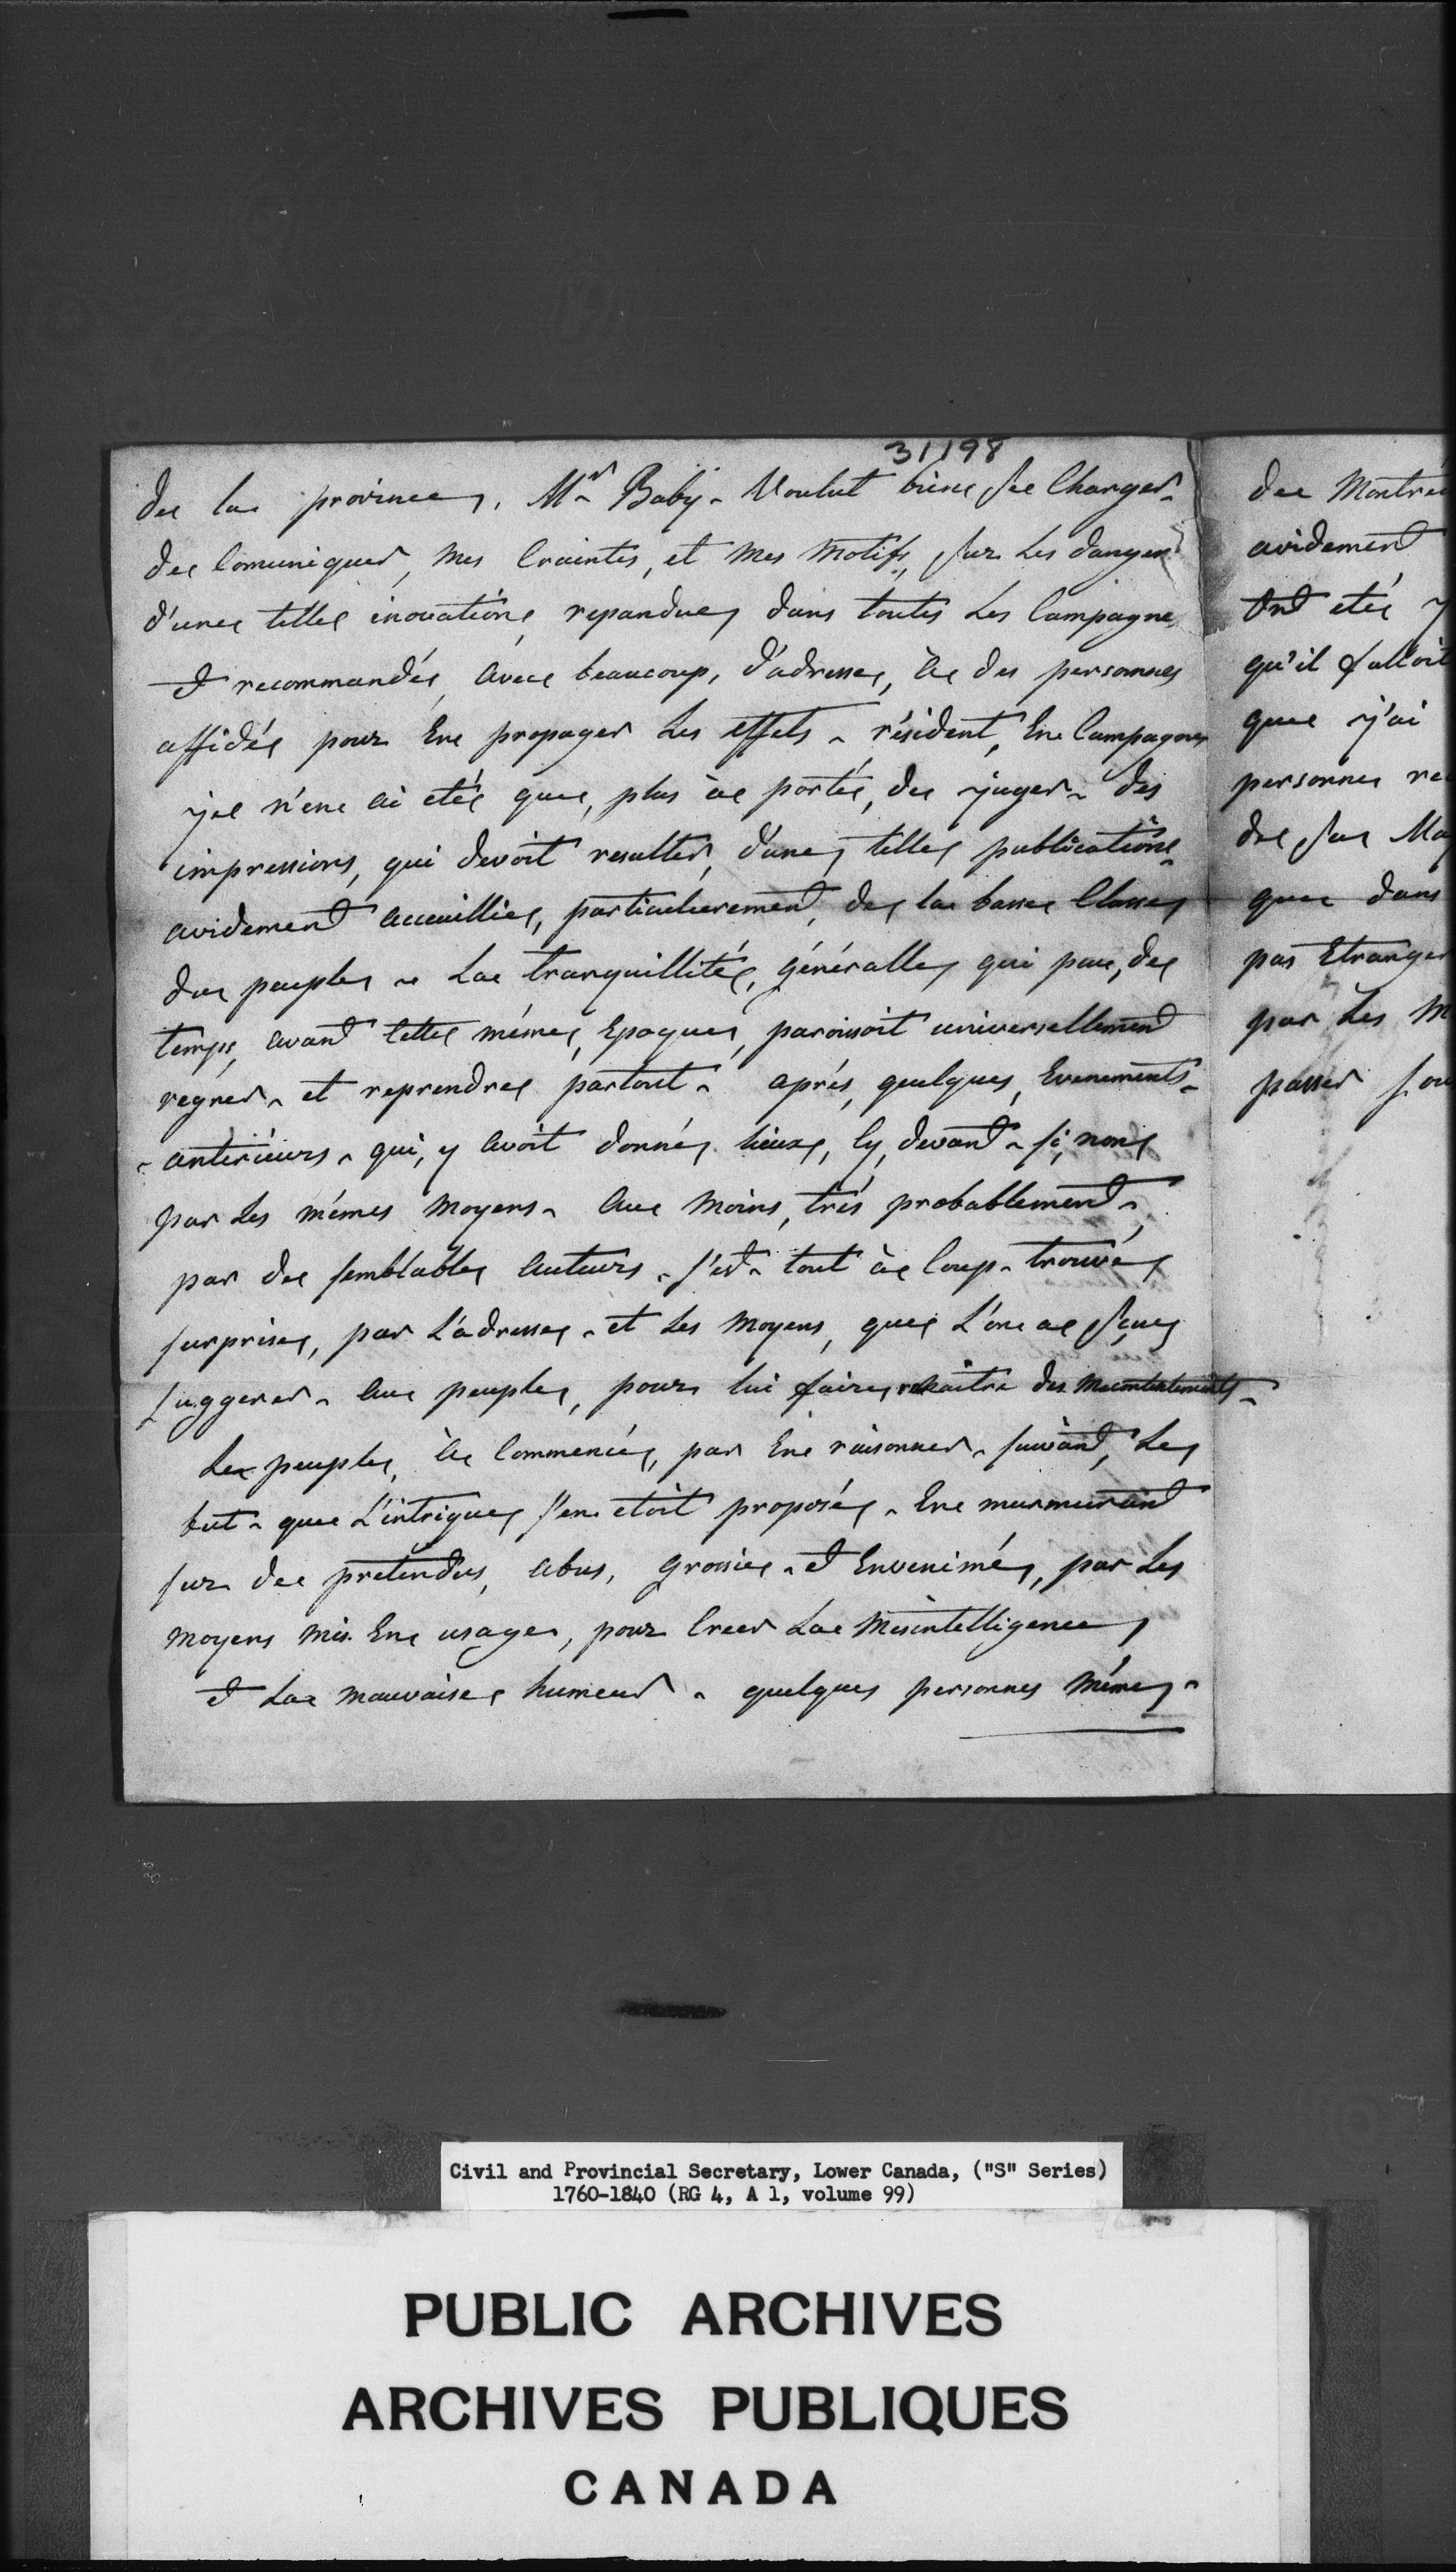 31198
de la province, Mr Baby - Voulut bien se Charger -
de Comuniquer, mes Craintes, et mes motifs, sur Les dangers
d'une telle inovation, repandue dans toutes Les Campagnes
et recommandée, avec beaucoup, d'adresse, à des personnes
affidée pour En propager Les effets - résident, En Campagne
je n'en ai eté que, plus à porté, de juger - des
impressions, qui devoit resulter, d'une telle publication -
avidement accuillie, particulierement, de la basse Classe
du peuple - La tranquillité, généralle qui peu, de
temps, avant Cette même, Epoque, paroissoit universellement
regner - et reprendre partout - après, quelques, Evenements -
- anterieurs - qui, y avoit donné lieux, Cy, devant - si, non
par Les mêmes moyens - Au moins, très probablement -
par de semblable Auteurs - s'est - tout à Coup - trouvé
surprise, par L'adresse - et Les moyens, que L'on a sçu
suggerer - Au peuple, pour lui faire renaitre des mecontentements -
Le peuple, à Commencé, par En raisonner - suivant, Le
but - que L'intrigue s'en etoit proposé - En murmurant
sur de pretendus, abus, grossie - et Envenimé, par Les
moyens mis En usage, pour Creer La mesintelligence
et La mauvaise humeur - quelques personnes même -
de Montré
avidement
Ont eté
qu'il falloit
que j'ai
personnes re
de sa Ma
que dans
pas Etranger
par Les M
passer sou
Civil and Provincial Secretary, Lower Canada, ("S" Series)
1760-1840 (RG 4, A 1, volume 99)
PUBLIC ARCHIVES
ARCHIVES PUBLIQUES
CANADA